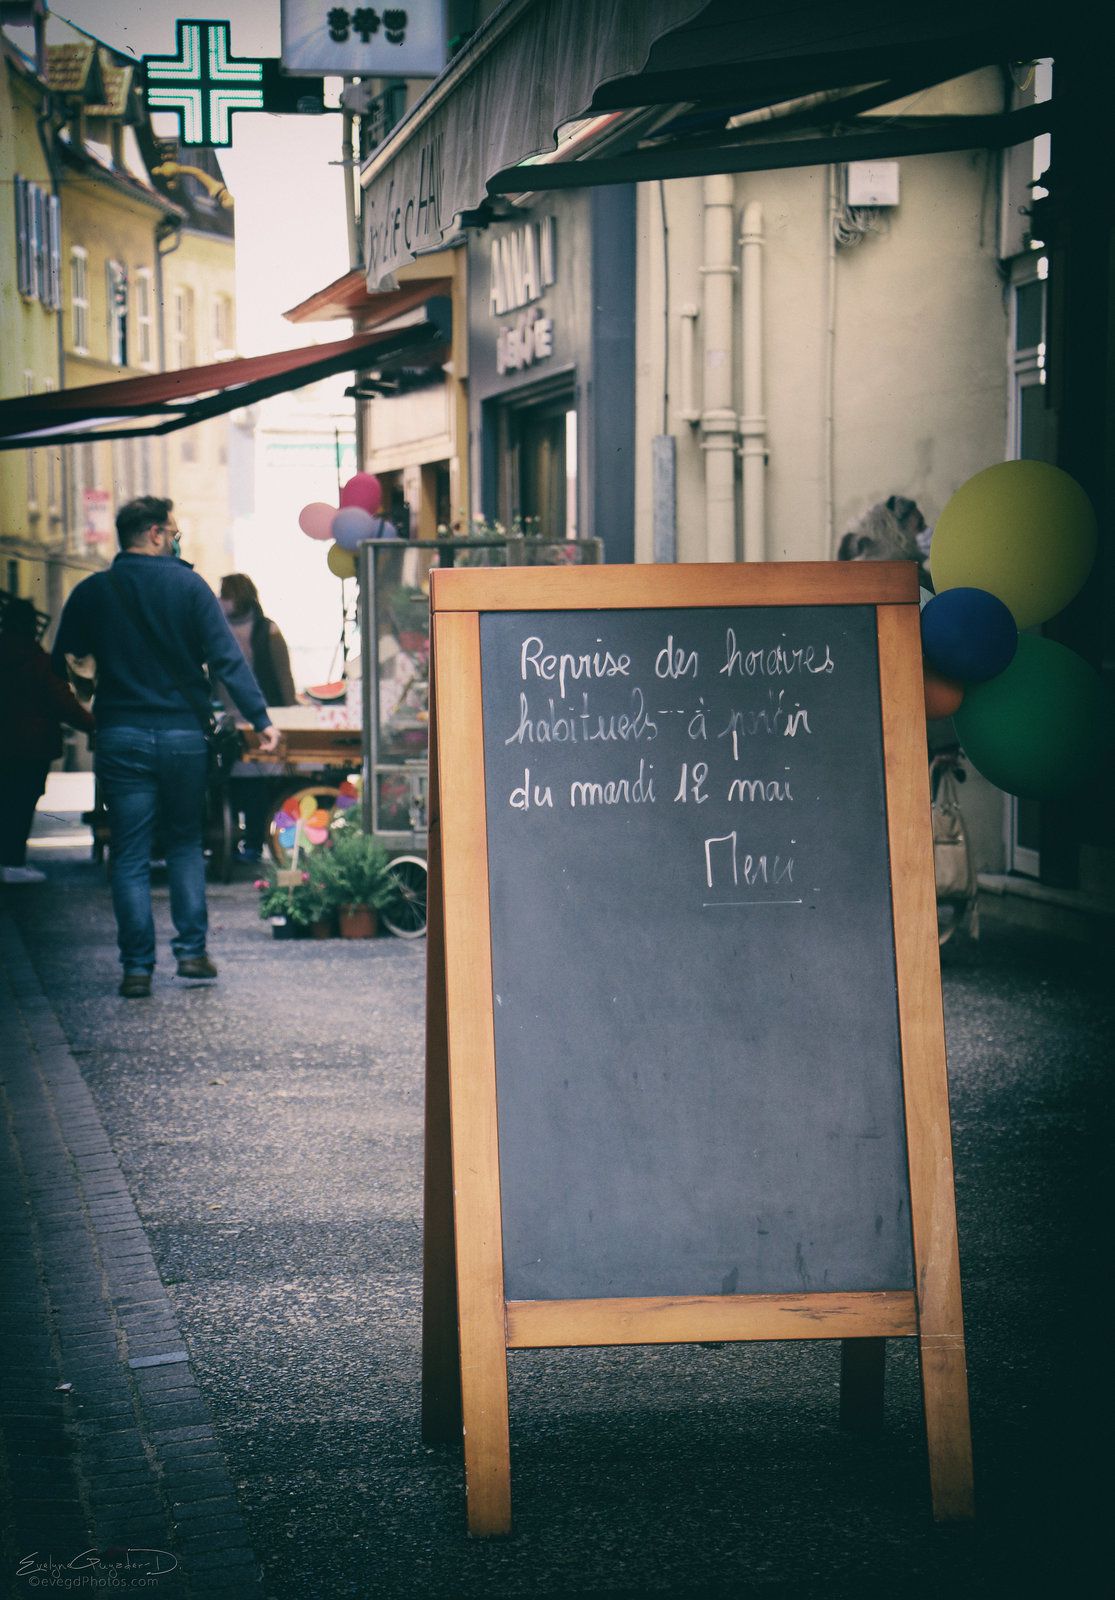 Reprise des horaires
habituels à partir
du mardi 12 mai
Merci
Evelyne Guyader-D.
©evegdPhotos.com